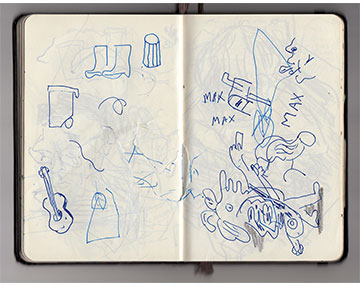 MAX
MAX
MAX